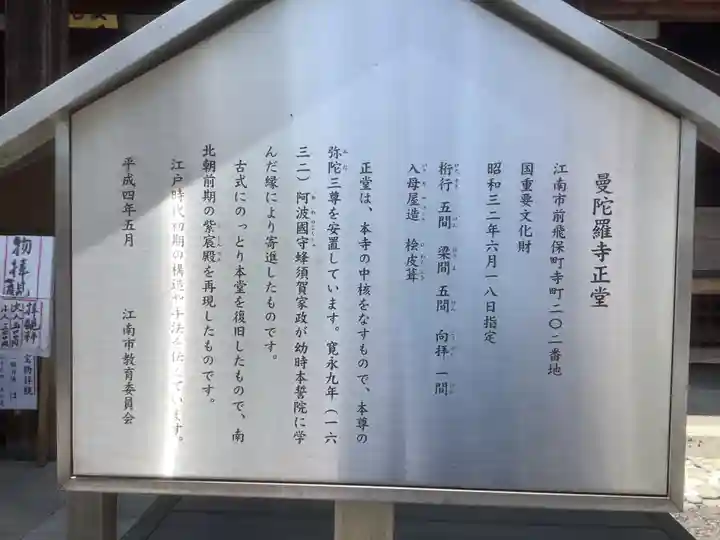 曼陀羅寺正堂
江南市前飛保町寺町二〇二番地
国重要文化財
昭和三二年六月一八日指定
桁行 五間 梁間 五間 向拝 一間
入母屋造 桧皮葺
正堂は、本寺の中核をなすもので、本尊の
弥陀三尊を安置しています。寛永九年(一六
三二)阿波國守蜂須賀家政が幼時本誓院に学
んだ縁により寄進したものです。
古式にのっとり本堂を復旧したもので、南
北朝前期の紫宸殿を再現したものです。
江戸時代初期の構造や手法を伝えています。
平成四年五月 江南市教育委員会
拝観料
宝物拝観